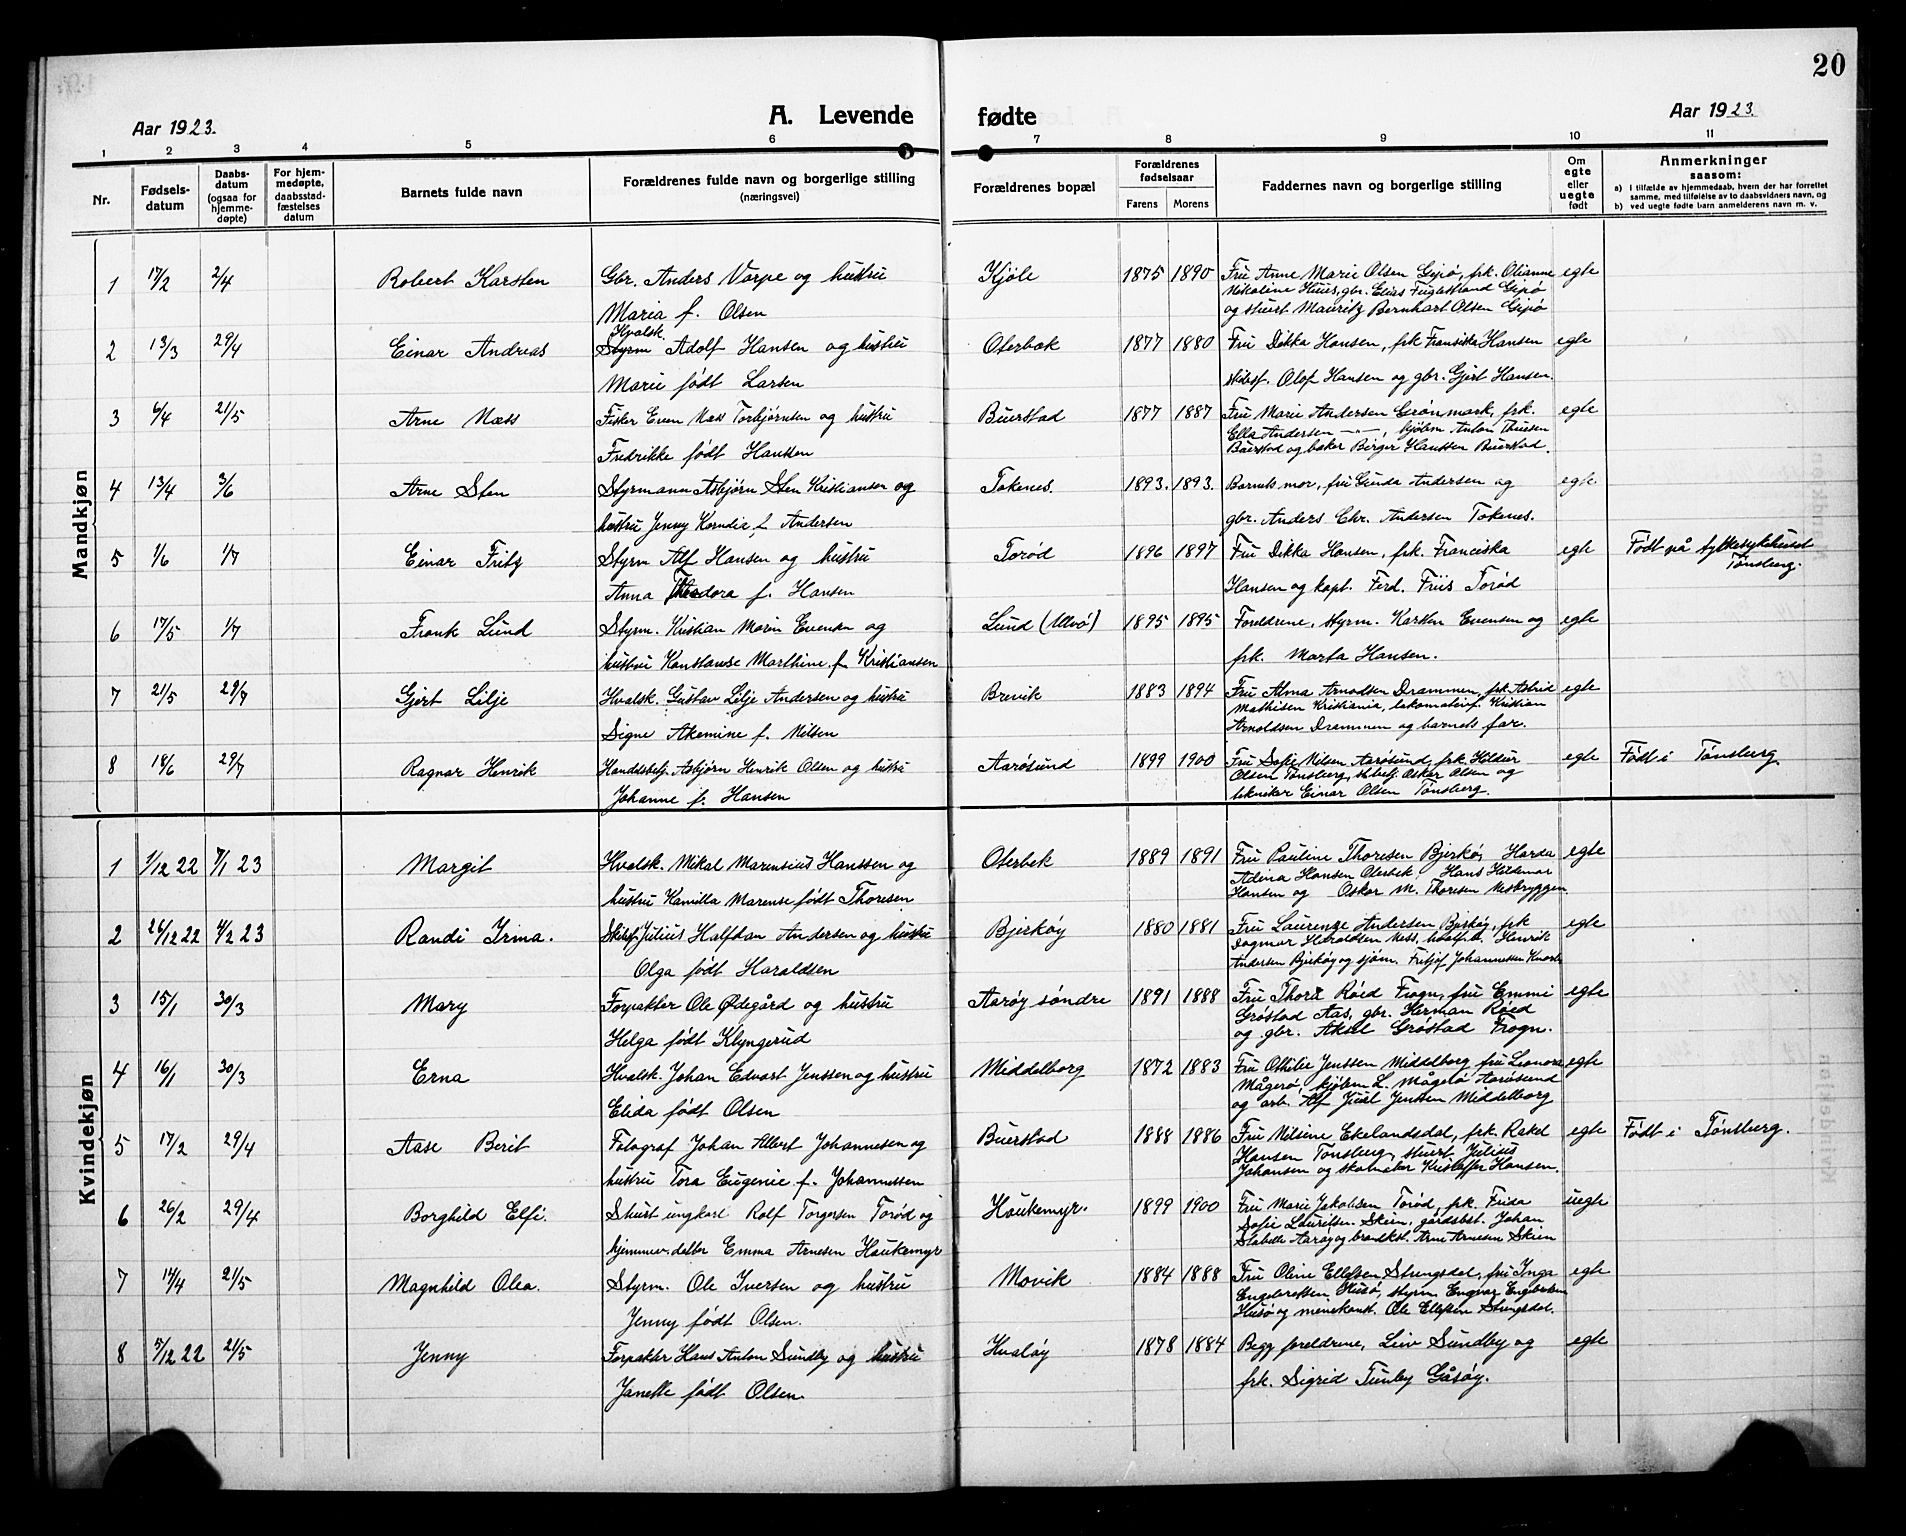 20
Aar 1923.
A. Levende fødte
Aar 1923.
1 2 3 4 5 6 7 8 9 10 11
Nr.
Fødsels-
datum
Daabs-
datum
(ogsaa for
hjemme-
døpte)
For hjem-
medøpte,
daabsstad-
fæstelses
datum
Barnets fulde navn
Forældrenes fulde navn og borgerlige stilling
(næringsvei)
Forældrenes bopæl
Forældrenes
fødselsaar
Farens Morens
Faddernes navn og borgerlige stilling
Om
egte
eller
uegte
født
Anmerkninger
saasom:
a) i tilfælde av hjemmedaab, hvem der har forrettet
samme, med tilføielse av to daabsvidners navn, og
b) ved uegte fødte barn anmelderens navn m. v.
Mandkjøn
1 17/2 2/4 Robert Karsten
Gbr. Anders Vorpe og hustru
Maria f. Olsen
Kjøle 1875 1890
Fru Anne Marie Olsen Gipø, frk. Olianne
Nikoline Huus, gbr. Elias Fuglestrand Gipø
og stuert Mauritz Bernhart Olsen Gipø
egte
2 13/3 29/4 Einar Andreas
Hvalsk.
Styrm Adolf Hansen og hustru
Marie født Larsen
Oterbæk 1877 1880
Fru Dikka Hansen, frk Fransiska Hansen
skibsf. Olof Hansen og gbr. Gjert Hansen.
egte
3 6/4 21/5 Arne Næss
Fisker Even Næss Torbjørnsen og hustru
Fredrikke født Hanssen
Buerstad 1877 1887
Fru Marie Andersen Grønmark, frk.
Ella Andersen —"—, kjøbm Anton Thuesen
Buerstad og baker Birger Hanssen Buerstad.
egte
4 13/4 3/6 Arne Sten
Styrmann Asbjørn Sten Kristiansen og
hustru Jenny Korndia f. Andersen
Tokenes. 1893. 1893.
Barnets mor, fru Ginda Andersen og
gbr. Anders Chr. Andersen Tokenes.
egte.
5 1/6 1/7 Einar Fritz
Styrm Alf Hansen og hustru
Anna Theodora f. Hansen
Torød 1896 1897
Fru Dikka Hansen, frk. Franciska
Hansen og kapt. Ferd. Friis Torød
egte
Født på fylkessykehuset
Tønsberg.
6 17/5 1/7 Frank Lund
Styrm. Kristian Marin Evensen og
hustru Konstanse Marthine f. Kristiansen
Lund (Ulvø) 1895 1895
Foreldrene, styrm. Karsten Evensen og
frk. Marta Hansen.
egte
7 21/5 29/7 Gjert Lilje
Hvalsk. Gustav Lilje Andersen og hustru
Signe Akemine f. Nilsen
Brevik 1883 1894
Fru Alma Arnodsen Drammen, frk Astrid
Mathisen Kristiania, lokomotivf. Kristian
Arnoldsen Drammen og barnets far.
egte
8 18/6 29/7 Ragnar Henrik
Handelsbetj. Asbjørn Henrik Olsen og hustru
Johanne f. Hansen
Aarøsund 1899 1900
Fru Sofie Nilsen Aarøsund, frk. Hildur
Olsen Tønsberg, Oskar Olsen og
tekniker Einar Olsen Tønsberg.
egte
Født i Tønsberg
Kvindekjøn
1 1/12 22 7/1 23 Margit
Hvalsk. Mikal Marensius Hanssen og
hustru Kamilla Marense født Thoresen
Oterbek 1889 1891
Fru Pauline Thoresen Bjerkø, Harda
Adina Hansen Oterbek, Hans Hildemar
Hansen og Oskar M. Thoresen Nesbryggen
egte
2 26/12 22 4/2 23 Randi Irma.
Skibsf. Julius Halfdan Andersen og hustru
Olga født Haraldsen
Bjerkøy 1880 1881
Fru Laurenze Andersen Bjerkøy, frk
Dagmar Haraldsen Ness, hvalf. Henrik
Andersen Bjerkøy og sjøm. Fritjof Johannessen
egte
3 15/1 30/3 Mary
Forpakter Ole Ødegård og hustru
Helga født Klyngerud
Aarøy søndre 1891 1888
Fru Thora Røed Frogn, fru Emmi
Grøstad Aas, gbr. Herman Røed
og gbr. Aksel Grøstad Frogn.
egte
4 16/1 30/3 Erna
Hvalsk. Johan Edvart Jenssen og hustru
Elida født Olsen
Middelborg 1872 1883
Fru Othilie Jenssen Middelborg fru Leonora
Mågerø, kjøbm L. Mågerø Aarøsund
og arb. Alf Juel Jenssen Middelborg
egte
5 17/2 29/4 Aase Berit
Fotograf Johan Albert Johannesen og
hustru Tora Eugenie f. Johannessen
Buerstad 1888 1886
Fru Nilsine Ekelandsdal, frk. Rakel
Hansen Tønsberg, stuert Julius
Johansen og skolmeter Kristoffer Hansen.
egte
Født i Tønsberg.
6 26/2 29/4 Borghild Elfi.
Stuert ungkarl Rolf Torgersen Torød og
hjemmev. datter Emma Arnesen Haukemyr
Haukemyr. 1899 1900
Fru Marie Jakobsen Torød, frk. Frida
Sofie Lauritsen Skien, gårdsbst. Johan
Stabell Aarøy og brandkst. Arne Arnesen Skien
uegte
7 14/4 21/5 Magnhild Olea.
Styrm. Ole Iversen og hustru
Jenny født Olsen.
Movik 1884 1888
Fru Oline Ellefsen Strengsdal, fru Inga
Engebretsen Husø, styrm. Engvar Engebretsen
Husø og minekont. Ole Ellefsen Strengsdal.
egte
8 5/12 22 21/5 Jenny
Forpakter Hans Anton Sundby og hustru
Janette født Olsen.
Hvaløy 1878 1884
Begg foreldrene, Liv Sundby og
frk. Sigrid Tunby Gåsøy.
egte